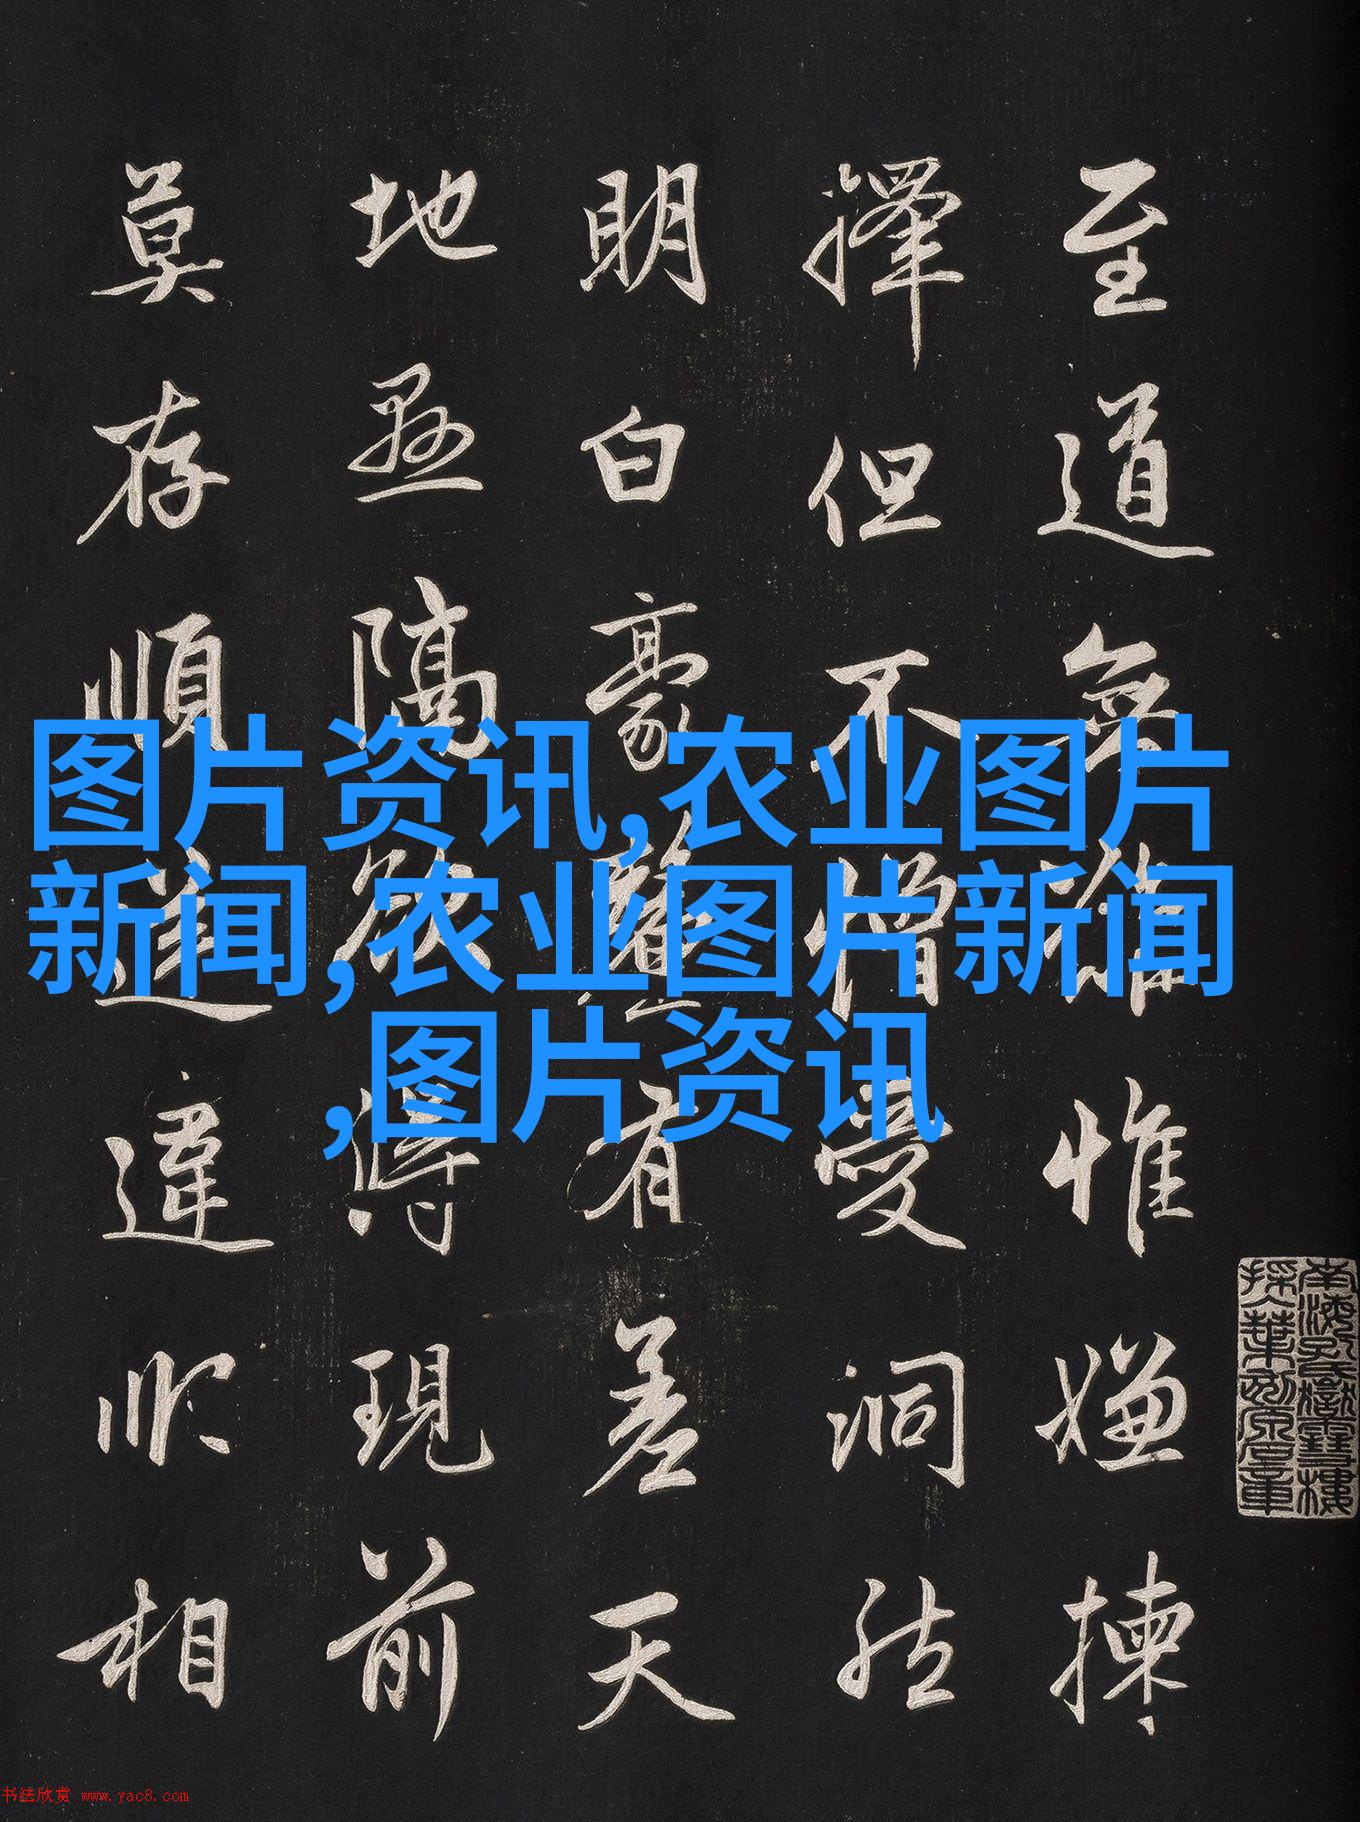 至道無難惟嫌揀
擇但不憎愛洞然
明白豪釐有差天
地懸隔欲得現前
莫存順逆違順相
图片资讯,农业图片
新闻,农业图片新闻
,图片资讯
南海孔氏嶽雪樓
书法欣赏 www.yac8.com